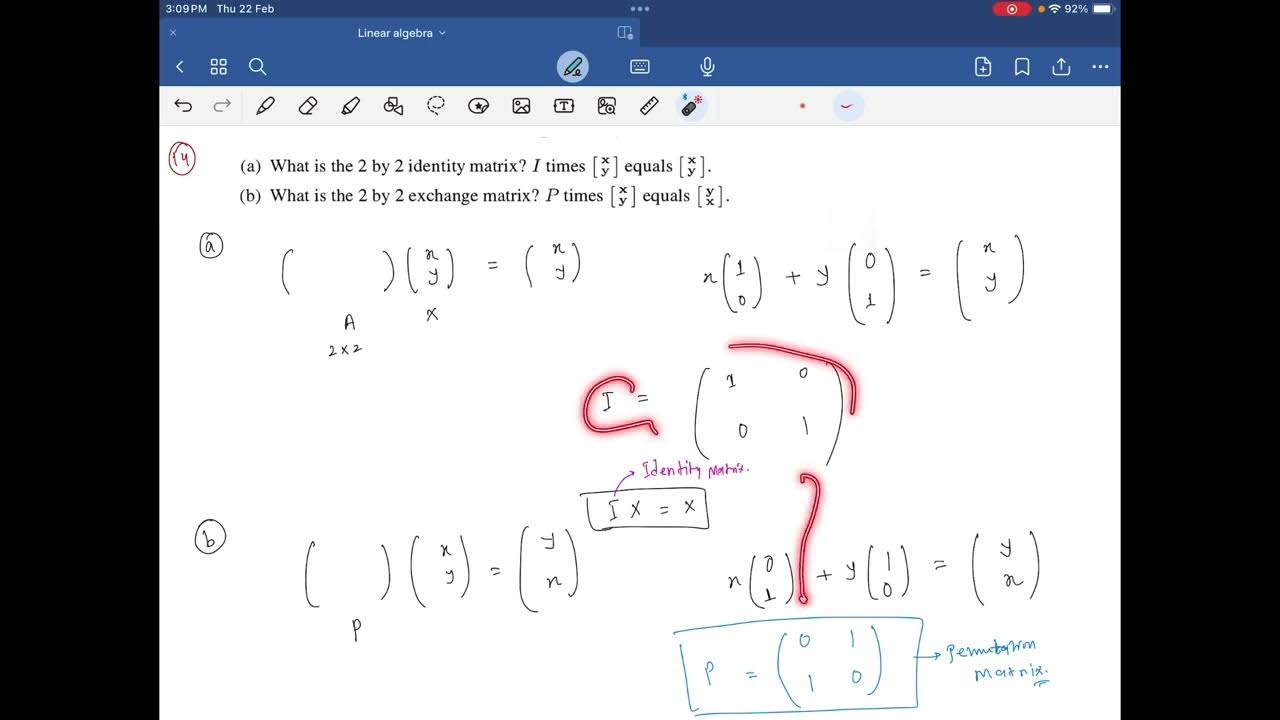 3:09 PM Thu 22 Feb
92%
Linear algebra
14
(a) What is the 2 by 2 identity matrix? I times [x y] equals [x y].
(b) What is the 2 by 2 exchange matrix? P times [x y] equals [y x].
a
( ) (x y) = (x y)
A x
2x2
x (1 0) + y (0 1) = (x y)
I = (1 0
0 1)
Identity matrix.
I x = x
b
( ) (x y) = (y x)
P
x (0 1) + y (1 0) = (y x)
P = (0 1
1 0)
Permutation
Matrix.